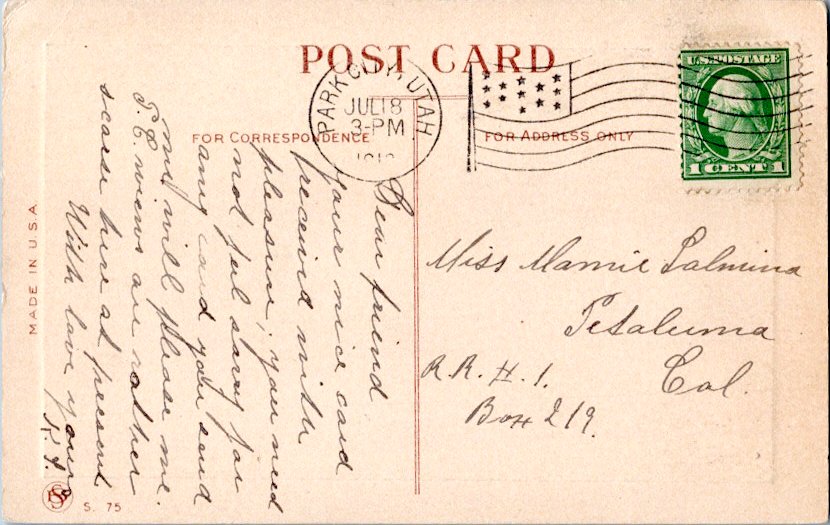 POST CARD
PARK CITY, UTAH
JUL 18
3-PM
U.S. POSTAGE
1 CENT 1
FOR CORRESPONDENCE
FOR ADDRESS ONLY
Dear friend
your nice card
received with
pleasure, you need
not feel sorry for
any card you send
me will please me.
J. C. views are rather
scarse here at present
With love yours
Miss Mamie Salmina
Petaluma
R.R. #. 1. Cal.
Box 219.
MADE IN U.S.A
S. 75